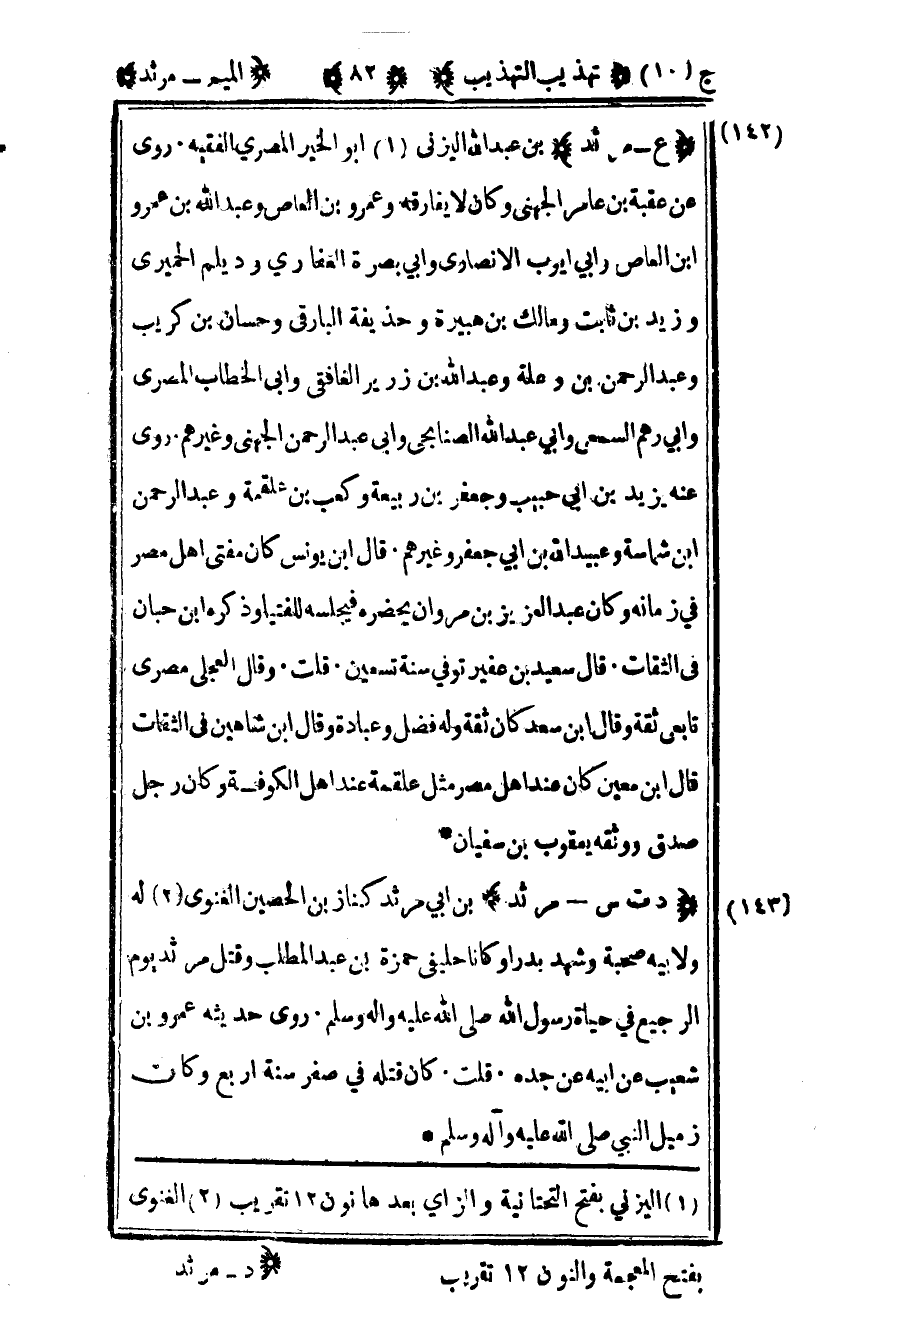 ج (١٠) ﴿ تهذيب التهذيب ﴾ ﴿ ٨٢ ﴾ ﴿ الميم ـ مرثد ﴾
(١٤٢) ﴿ ع ـ مرثد ﴾ بن عبدالله اليزنى (١) ابو الخير المصري الفقيه ٠ روى
عن عقبة بن عامر الجهنى وكان لا يفارقه وعمرو بن العاص وعبدالله بن عمرو
ابن العاص وابي ايوب الانصارى وابي بصرة الغفاري وديلم الحميرى
وزيد بن ثابت ومالك بن هبيرة وحذيفة البارقى وحسان بن كريب
وعبدالرحمن بن وعلة وعبدالله بن زرير الغافقى وابي الخطاب المصرى
وابي رهم السمعى وابي عبدالله الصنابحى وابى عبدالرحمن الجهنى وغيرهم ٠ روى
عنه يزيد بن ابي حبيب وجعفر بن ربيعة وكعب بن علقمة وعبدالرحمن
ابن شماسة وعبيدالله بن ابي جعفر وغيرهم ٠ قال ابن يونس كان مفتى اهل مصر
في زمانه وكان عبدالعزيز بن مروان يحضره فيجلسه للفتيا وذكره ابن حبان
فى الثقات ٠ قال سعيد بن عفير توفي سنة تسعين ٠ قلت ٠ وقال العجلى مصرى
تابعى ثقة وقال ابن سعد كان ثقة وله فضل وعبادة وقال ابن شاهين فى الثقات
قال ابن معين كان عند اهل مصر مثل علقمة عند اهل الكوفة وكان رجل
صدق ووثقه يعقوب بن سفيان *
(١٤٣) ﴿ د ت س ـ مرثد ﴾ بن ابي مرثد كناز بن الحصين الغنوى (٢) له
ولابيه صحبة وشهد بدرا وكانا حليفى حمزة بن عبدالمطلب وقتل مرثد يوم
الرجيع في حياة رسول الله صلى الله عليه واله وسلم ٠ روى حديثه عمرو بن
شعيب عن ابيه عن جده ٠ قلت ٠ كان قتله في صفر سنة اربع وكان
زميل النبي صلى الله عليه وآله وسلم *
(١) اليزني بفتح التحتانية والزاي بعدها نون ١٢ تقريب (٢) الغنوى
بفتح المعجمة والنون ١٢ تقريب ﴿ د ـ مرثد